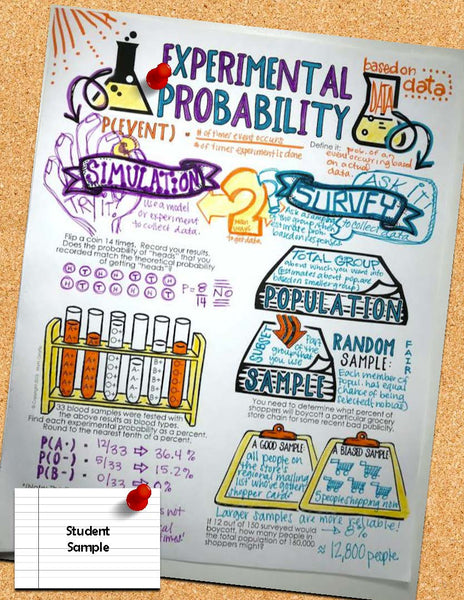 EXPERIMENTAL
PROBABILITY
based on
data
DATA
P(EVENT) = # of times event occurs
# of times experiment is done
Define it: prob. of an
event occurring based
on actual
data.
SIMULATION
TRY IT!
Use a model
or experiment
to collect data.
2
main
ways
to get data
ASK IT!
SURVEY
to collect data
Ask a sample
of the group then
estimate
based on responses
Flip a coin 14 times. Record your results.
Does the probability of "heads" that you
recorded match the theoretical probability
of getting "heads"?
P= 8/14 NO
TOTAL GROUP
about which you want info
Estimates about pop. are
based on smaller group
POPULATION
SUBSET
Part
of the
group that
you use
SAMPLE
RANDOM
SAMPLE:
FAIR
Each member of
popul. has equal
chance of being
selected; no bias
33 blood samples were tested with
the above results as blood types.
Find each experimental probability as a percent.
Round to the nearest tenth of a percent.
P(A+) 12/33 ⇒ 36.4 %
P(O-) = 5/33 ⇒ 15.2%
P(B-) = 0/33 ⇒ 0%
You need to determine what percent of
shoppers will boycott a particular grocery
store chain for some recent bad publicity.
A GOOD SAMPLE:
all people on
the store's
regional mailing
list who've gotten
shopper cards
A BIASED SAMPLE
5 people shopping now
Larger samples are more reliable!
If 12 out of 150 surveyed would
boycott, how many people in
the total population of 160,000
shoppers might?
→ 8%
≈ 12,800 people
is not
times!
Student
Sample